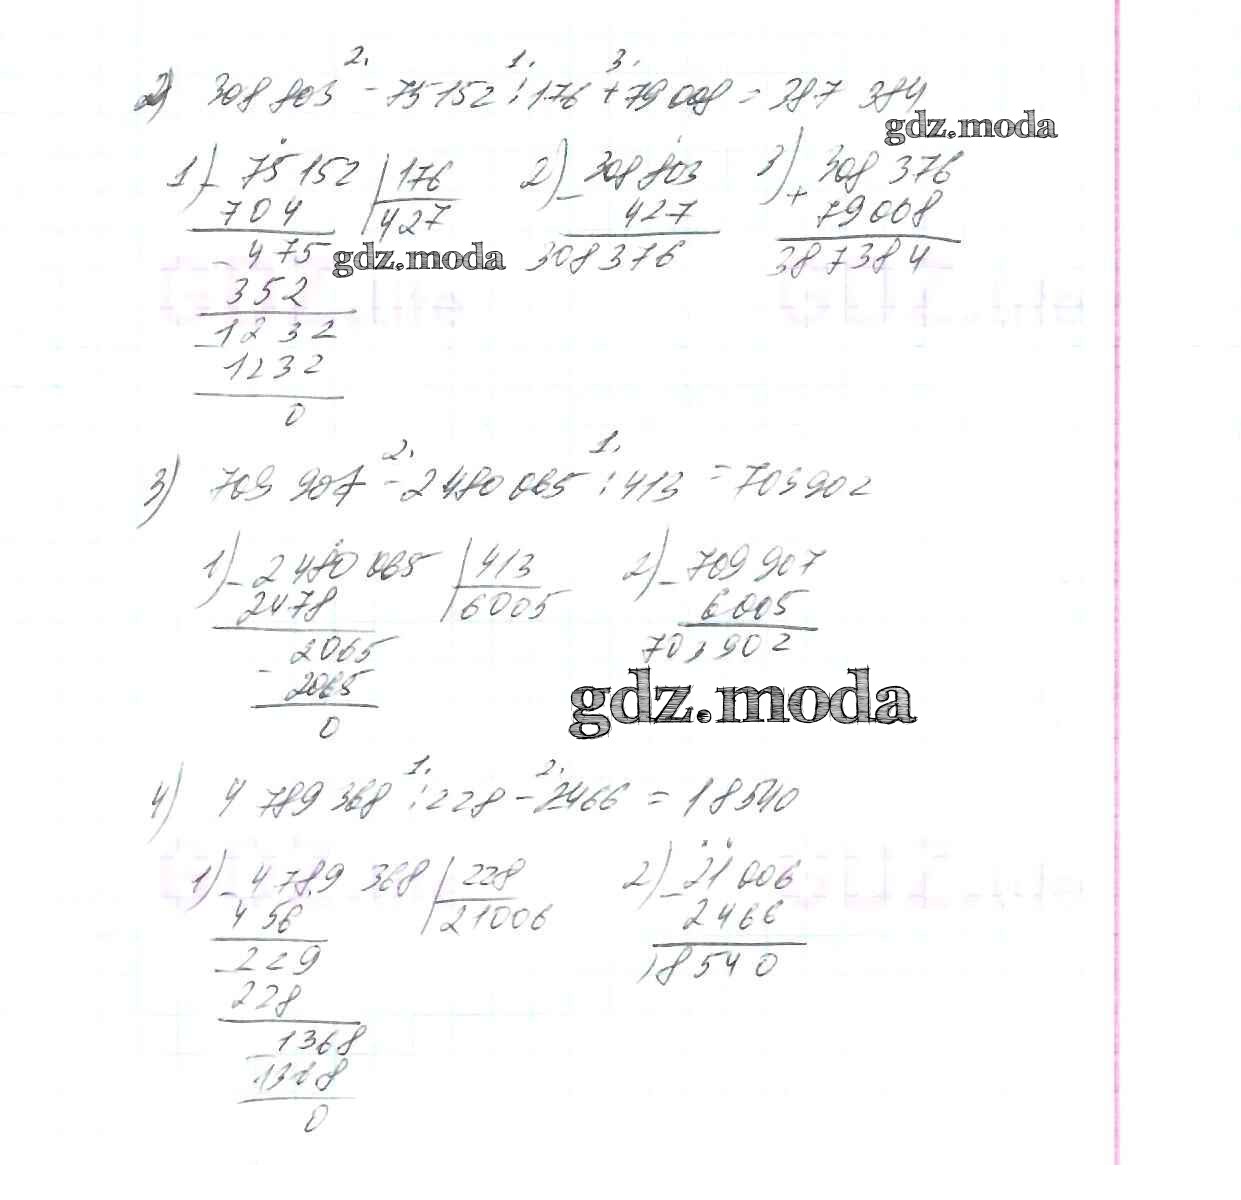 2) 308 803 - 75152 : 176 + 79 008 = 387 384
2. 1. 3.
gdz.moda
1) - 75 152 | 176
704 427
- 475
352
- 1232
1232
0
2) - 308 803
427
308376
3) + 308 376
79008
387384
gdz.moda
3) 709 907 - 2 480 065 : 413 = 703902
2. 1.
1) - 2 480 065 | 413
2478 6005
- 2065
2065
0
2) - 709 907
6005
703902
gdz.moda
4) 4 789 368 : 228 - 2466 = 18540
1. 2.
1) - 4 789 368 | 228
456 21006
- 229
228
- 1368
1368
0
2) - 21 006
2466
18540